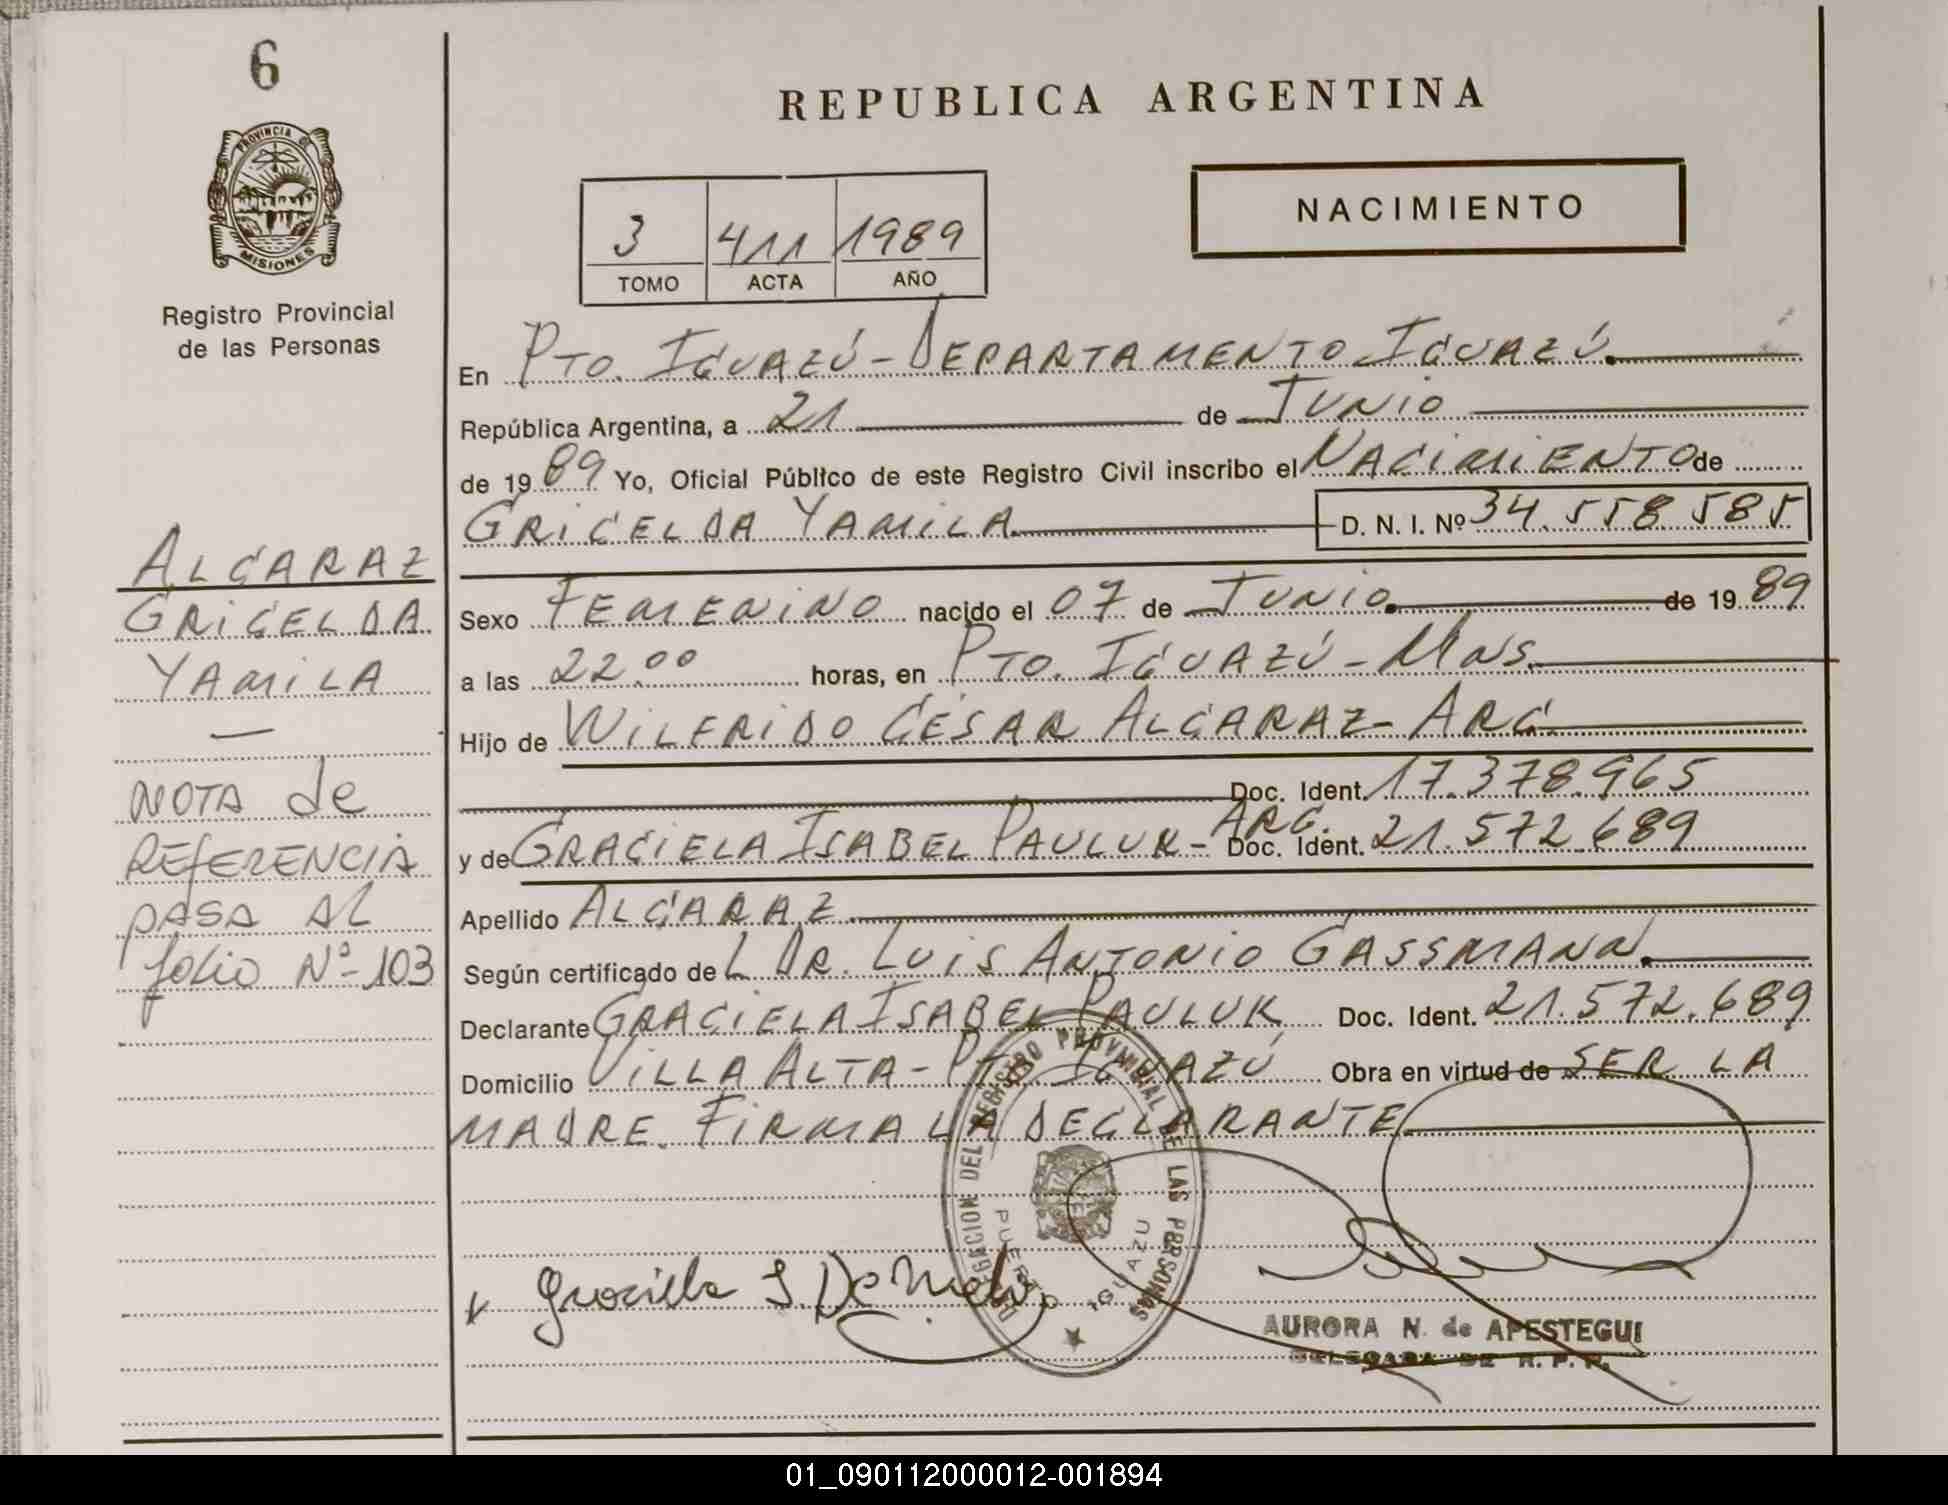 6
PROVINCIA DE
MISIONES
Registro Provincial
de las Personas
ALCARAZ
GRICELDA
YAMILA
—
NOTA de
REFERENCIA
PASA AL
folio Nº-103
REPUBLICA ARGENTINA
NACIMIENTO
3 411 1989
TOMO ACTA AÑO
En PTO. IGUAZÚ - DEPARTAMENTO IGUAZÚ.
República Argentina, a 21 de JUNIO
de 1989 Yo, Oficial Público de este Registro Civil inscribo el NACIMIENTO de
GRICELDA YAMILA D. N. I. Nº 34.558585
Sexo FEMENINO nacido el 07 de JUNIO de 1989
a las 22.00 horas, en PTO. IGUAZÚ - Mns.
Hijo de WILFRIDO CÉSAR ALCARAZ - ARG.
Doc. Ident. 17.378.965
y de GRACIELA ISABEL PAULUK - ARG. Doc. Ident. 21.572.689
Apellido ALCARAZ
Según certificado de L DR. LUIS ANTONIO GASSMANN.
Declarante GRACIELA ISABEL PAULUK Doc. Ident. 21.572.689
Domicilio VILLA ALTA - PTO. IGUAZÚ Obra en virtud de SER LA
MADRE. FIRMA LA DECLARANTE
DELEGACION DEL REGISTRO PROVINCIAL DE LAS PERSONAS
PUERTO IGUAZU
AURORA N. de APESTEGUI
DELEGADA DE R. P. P.
01_090112000012-001894